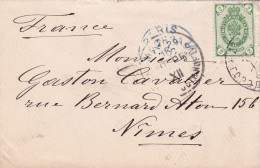 France
PARIS
Monsieur
Gaston Cavalier
rue Bernard Aton 156
Nîmes